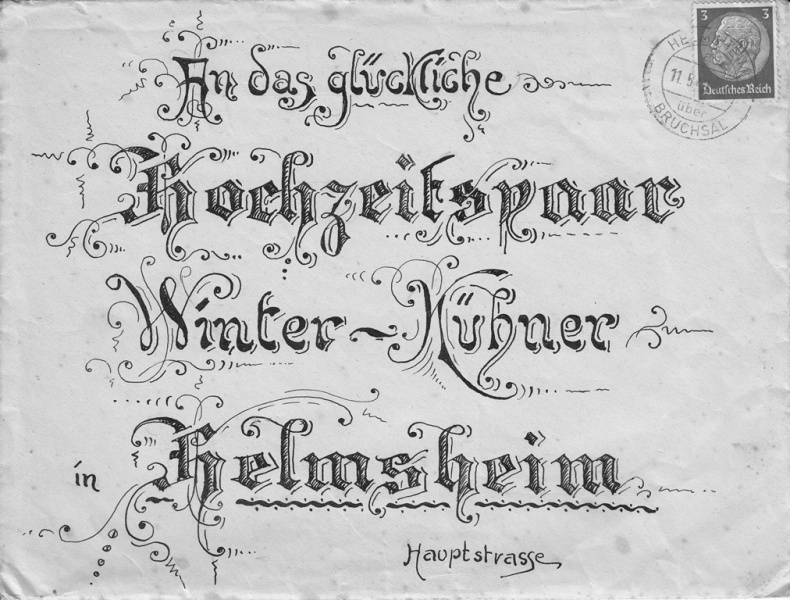 An das glückliche
Hochzeitspaar
Winter-Kühner
in Helmsheim
Hauptstrasse
3 3
Deutsches Reich
11.5
über
BRUCHSAL